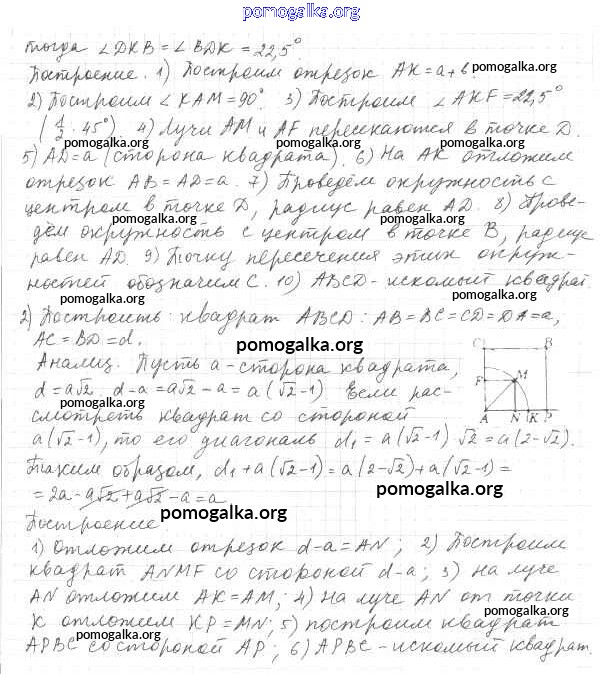 pomogalka.org
тогда ∠DKB = ∠BDK = 22,5°
Построение. 1) Построим отрезок AK = a + b
pomogalka.org
pomogalka.org
2) Построим ∠KAM = 90°. 3) Построим ∠AKF = 22,5°
(1/2 · 45°) 4) Лучи AM и AF пересекаются в точке D.
pomogalka.org
pomogalka.org
5) AD = a (сторона квадрата). 6) На AK отложим
отрезок AB = AD = a. 7) Проведём окружность с
центром в точке D, радиус равен AD. 8) Прове-
pomogalka.org
pomogalka.org
дём окружность с центром в точке B, радиус
равен AD. 9) Точку пересечения этих окруж-
ностей обозначим C. 10) ABCD - искомый квадрат.
pomogalka.org
pomogalka.org
2) Построить: квадрат ABCD: AB = BC = CD = DA = a,
AC = BD = d.
pomogalka.org
Анализ. Пусть a - сторона квадрата,
d = a√2 d - a = a√2 - a = a(√2 - 1) Если рас-
pomogalka.org
pomogalka.org
смотреть квадрат со стороной
a(√2 - 1), то его диагональ d₁ = a(√2 - 1)·√2 = a(2 - √2).
C B
F M
A N K P
Таким образом, d₁ + a(√2 - 1) = a(2 - √2) + a(√2 - 1) =
pomogalka.org
pomogalka.org
= 2a - a√2 + a√2 - a = a
pomogalka.org
Построение:
1) Отложим отрезок d - a = AN; 2) Построим
pomogalka.org
квадрат ANMF со стороной d - a; 3) На луче
AN отложим AK = AM; 4) На луче AN от точки
pomogalka.org
K отложим KP = MN; 5) построим квадрат
pomogalka.org
APBC со стороной AP; 6) APBC - искомый квадрат.
pomogalka.org